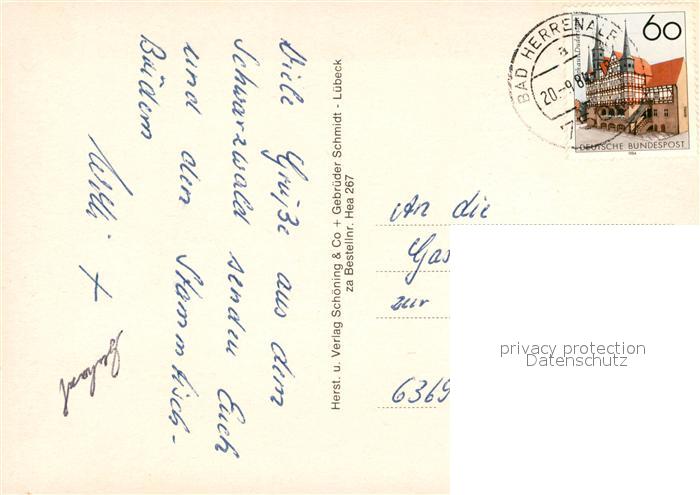 Viele Grüße aus dem
Schwarzwald senden Euch
und den Stammtisch-
Brüdern
Willi +
Gerhard
Herst. u. Verlag Schöning & Co + Gebrüder Schmidt - Lübeck
za Bestellnr. Hea 267
BAD HERRENALB
20.-9.84
60
DEUTSCHE BUNDESPOST
1984
An die
Gas
zur
6369
privacy protection
Datenschutz